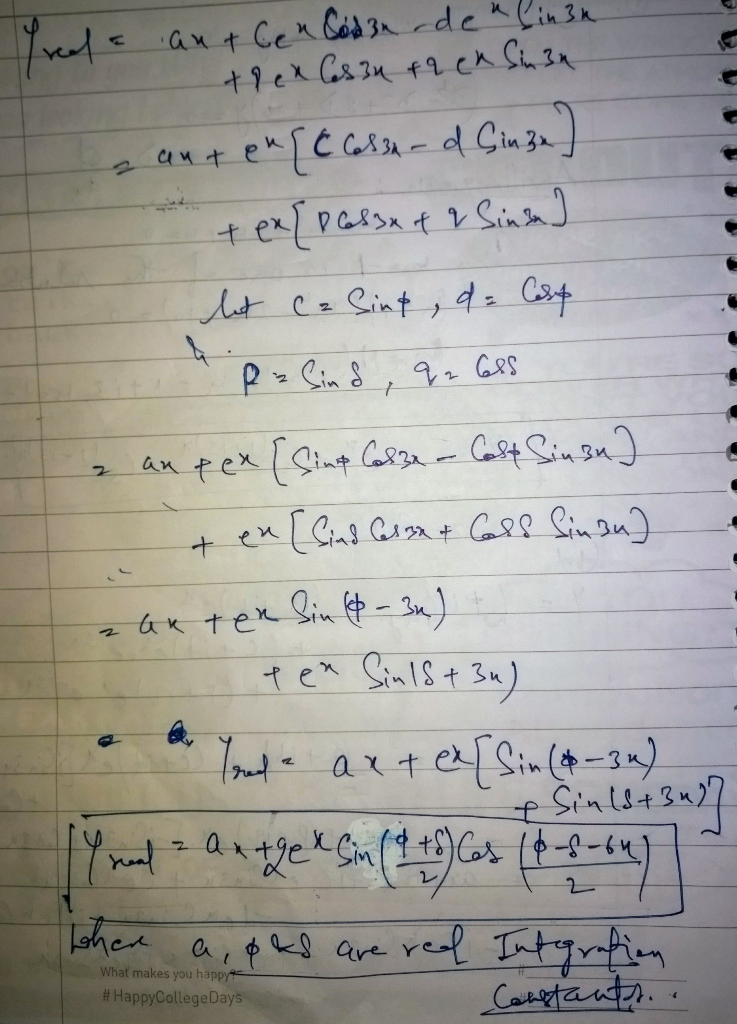 Yreal = ax + Cex Cos3x - dex Sin3x
+ P ex Cos3x + q ex Sin3x
= ax + ex [C Cos3x - d Sin3x]
+ ex [P Cos3x + q Sin3x]
let C = Sinϕ, d = Cosϕ
P = Sinδ, q = Cosδ
= ax + ex [Sinϕ Cos3x - Cosϕ Sin3x]
+ ex [Sinδ Cos3x + Cosδ Sin3x]
= ax + ex Sin(ϕ - 3x)
+ ex Sin(δ + 3x)
= Yreal = ax + ex [Sin(ϕ - 3x)
+ Sin(δ + 3x)]
Yreal = ax + 2ex Sin((ϕ + δ)/2) Cos((ϕ - δ - 6x)/2)
where a, ϕ & δ are real Integration
Constants.
What makes you happy?
#HappyCollegeDays